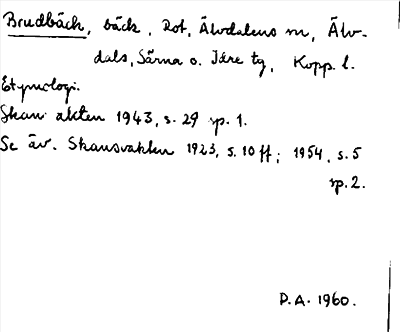 Brudbäck, bäck, Rot, Älvdalens sn, Älv-
dals, Särna o. Idre tg, Kopp. l.
Etymologi.
Skansvakten 1943, s. 29 sp. 1.
Se äv. Skansvakten 1923, s. 10 ff; 1954, s. 5
sp. 2.
D.A. 1960.